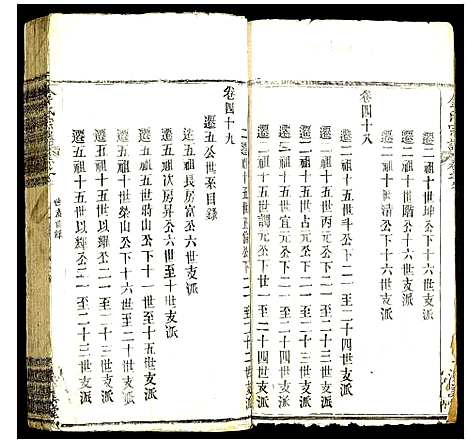 遷二祖十世坤公下十六世支派
遷二祖十世階公下十六世支派
遷二祖十世清公下十六世支派
卷四十八
遷二祖十五世斗公下二一至二十四世支派
遷二祖十五世丙元公下二一至二十四世支派
遷二祖十五世占元公下二一至二十四世支派
遷二祖十五世宜元公下二一至二十四世支派
遷二祖十五世調元公下廿一至二十四世支派
卷四十九
遷五公世系目錄
遷五祖長房富公六世支派
遷五祖次房昇公六世至十世支派
遷五祖十五世將山公下十一世至十五世支派
遷五祖十世榮山公下十六世至二十世支派
遷五祖十五世以繼公二一至二十三世支派
遷五祖十五世以經公二一至二十三世支派